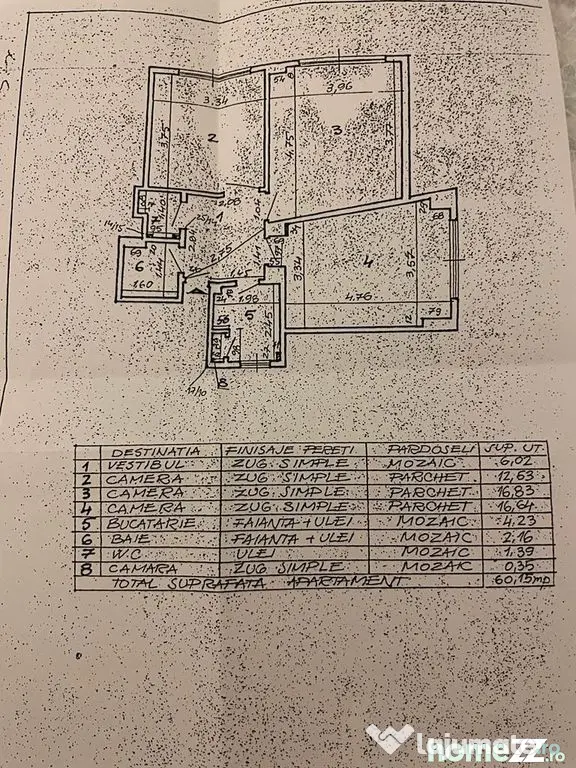 3,34
3,96
3,75
2
4,75
3
3,77
2,08
1
14/15
2,75
6
1,60
3,34
4
3,57
4,76
1,98
5
79
12
68
17/10
8
DESTINATIA FINISAJE PERETI PARDOSELI SUP. UT.
1 VESTIBUL ZUG. SIMPLE MOZAIC 6,02
2 CAMERA ZUG. SIMPLE PARCHET 12,53
3 CAMERA ZUG. SIMPLE PARCHET 16,83
4 CAMERA ZUG. SIMPLE PARCHET 16,64
5 BUCATARIE FAIANTA + ULEI MOZAIC 4,23
6 BAIE FAIANTA + ULEI MOZAIC 2,16
7 W.C. ULEI MOZAIC 1,39
8 CAMARA ZUG. SIMPLE MOZAIC 0,35
TOTAL SUPRAFATA APARTAMENT 60,15mp
Lajumate.ro
homezz.ro